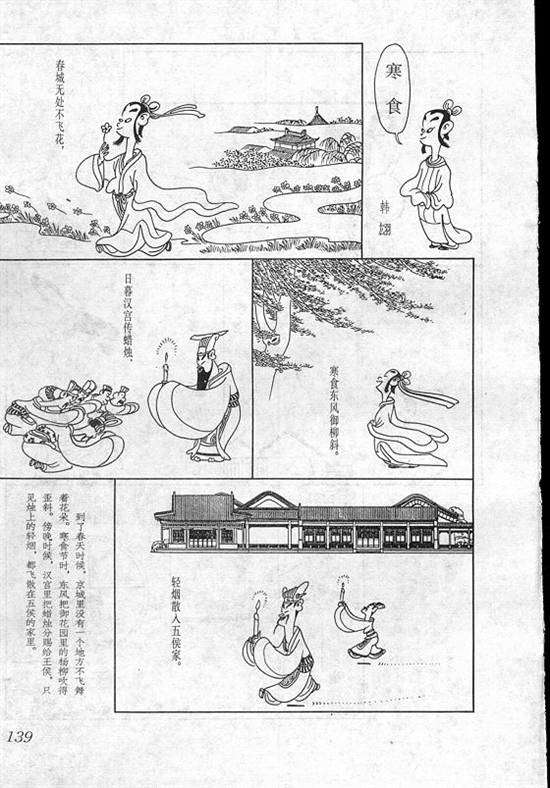 寒食
韩翃
春城无处不飞花，
寒食东风御柳斜。
日暮汉宫传蜡烛，
轻烟散入五侯家。
到了春天时候，京城里没有一个地方不飞舞
着花朵。寒食节时，东风把御花园里的杨柳吹得
歪斜。傍晚时候，汉宫里把蜡烛分赐给王侯，只
见烛上的轻烟，都飞散在五侯的家里。
139